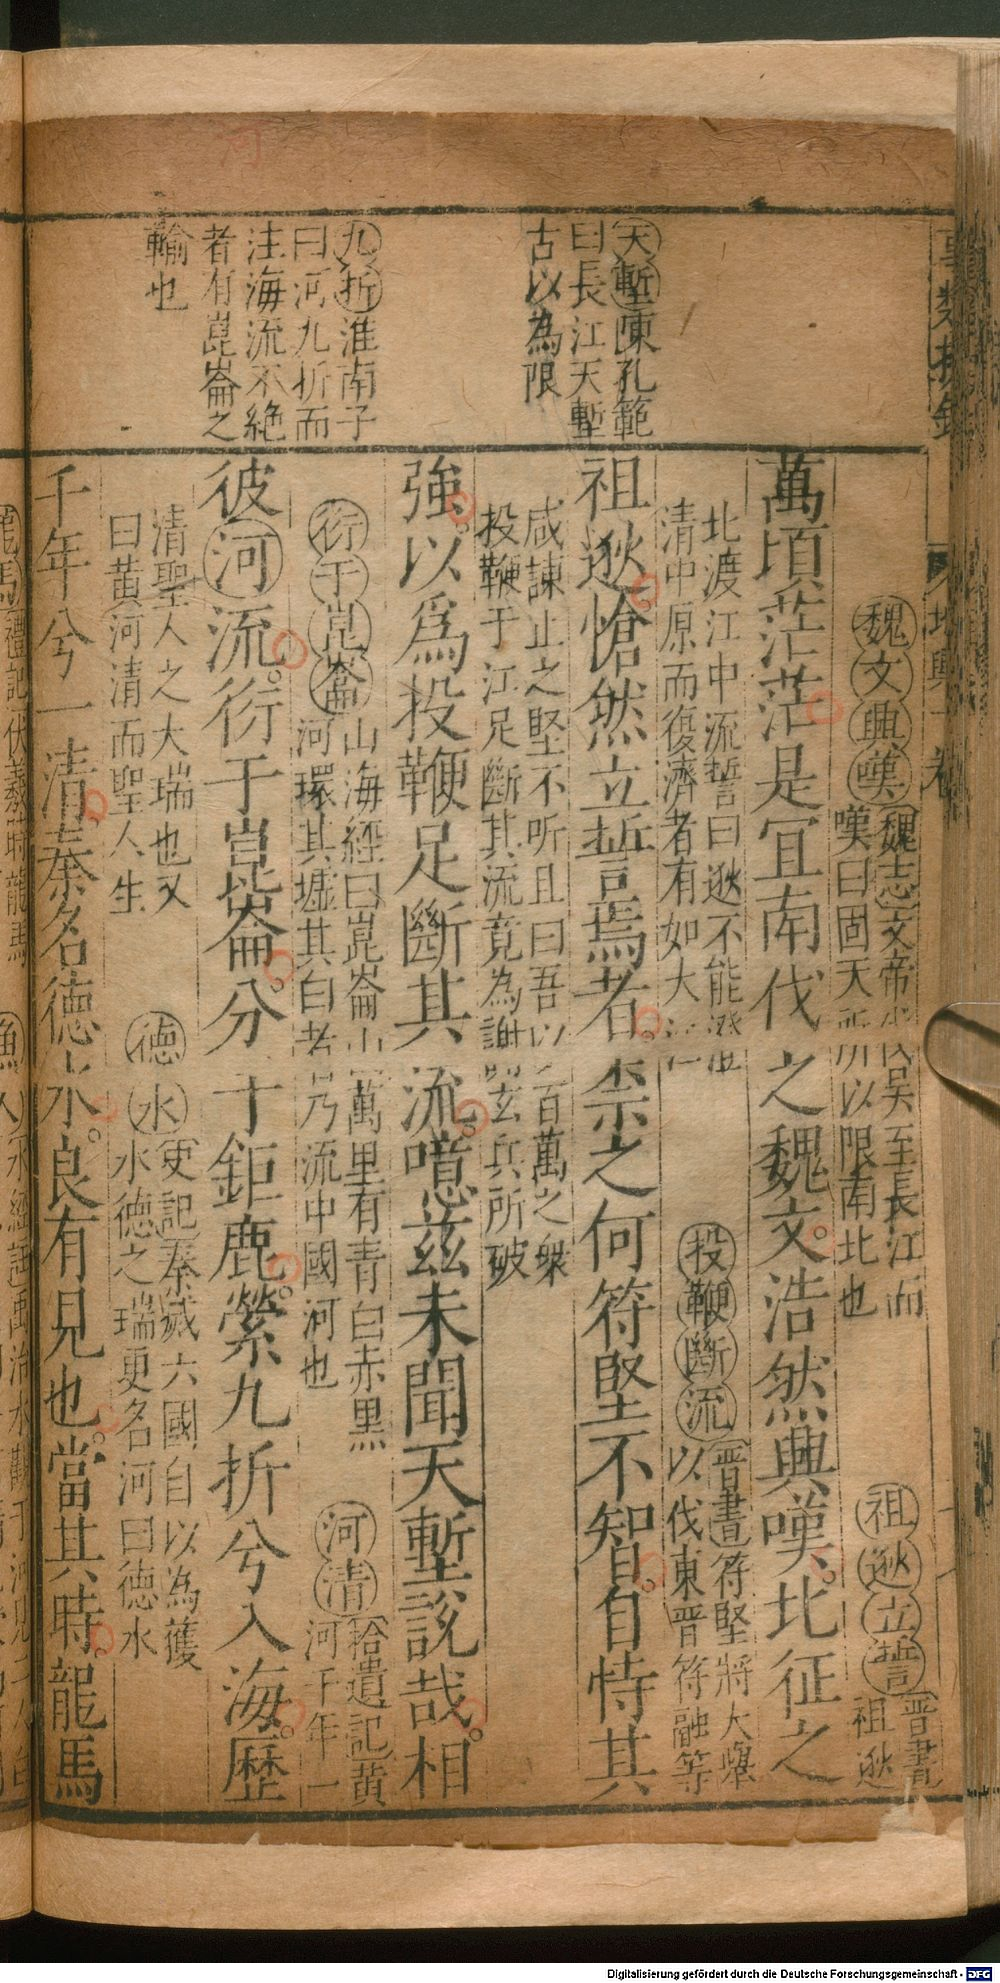 河
天塹陳孔範
曰長江天塹
古以為限
九折淮南子
曰河九折而
注海流不絶
者有崑崙之
輸也
地輿一卷
魏文興嘆 魏志文帝 吳至長江而
嘆曰固天所以限南北也
祖逖立誓 晋書
祖逖
萬頃茫茫是宜南伐之魏文浩然興嘆北征之
北渡江中流誓曰逖不能
清中原而復濟者有如大
投鞭斷流 晋書符堅將大舉
以伐東晋符融等
祖逖愴然立誓焉者柰之何符堅不智自恃其
咸諫止之堅不听且曰吾以百萬之衆
投鞭于江足斷其流竟為謝玄兵所破
強以爲投鞭足斷其流噫茲未聞天塹說哉相
衍于崑崙 山海經曰崑崙山 萬里有青白赤黑
河環其墟其白者乃流中國河也
河清 拾遺記黄
河千年一
彼河流衍于崑崙分十鉅鹿縈九折兮入海歷
清聖人之大瑞也又
曰黄河清而聖人生
德水 史記秦滅六國自以為獲
水德之瑞更名河曰德水
千年兮一清秦名德水良有見也當其時龍馬
龍馬 禮記伏羲時龍馬
漁人 水經註禹治水觀于河
Digitalisierung gefördert durch die Deutsche Forschungsgemeinschaft - DFG